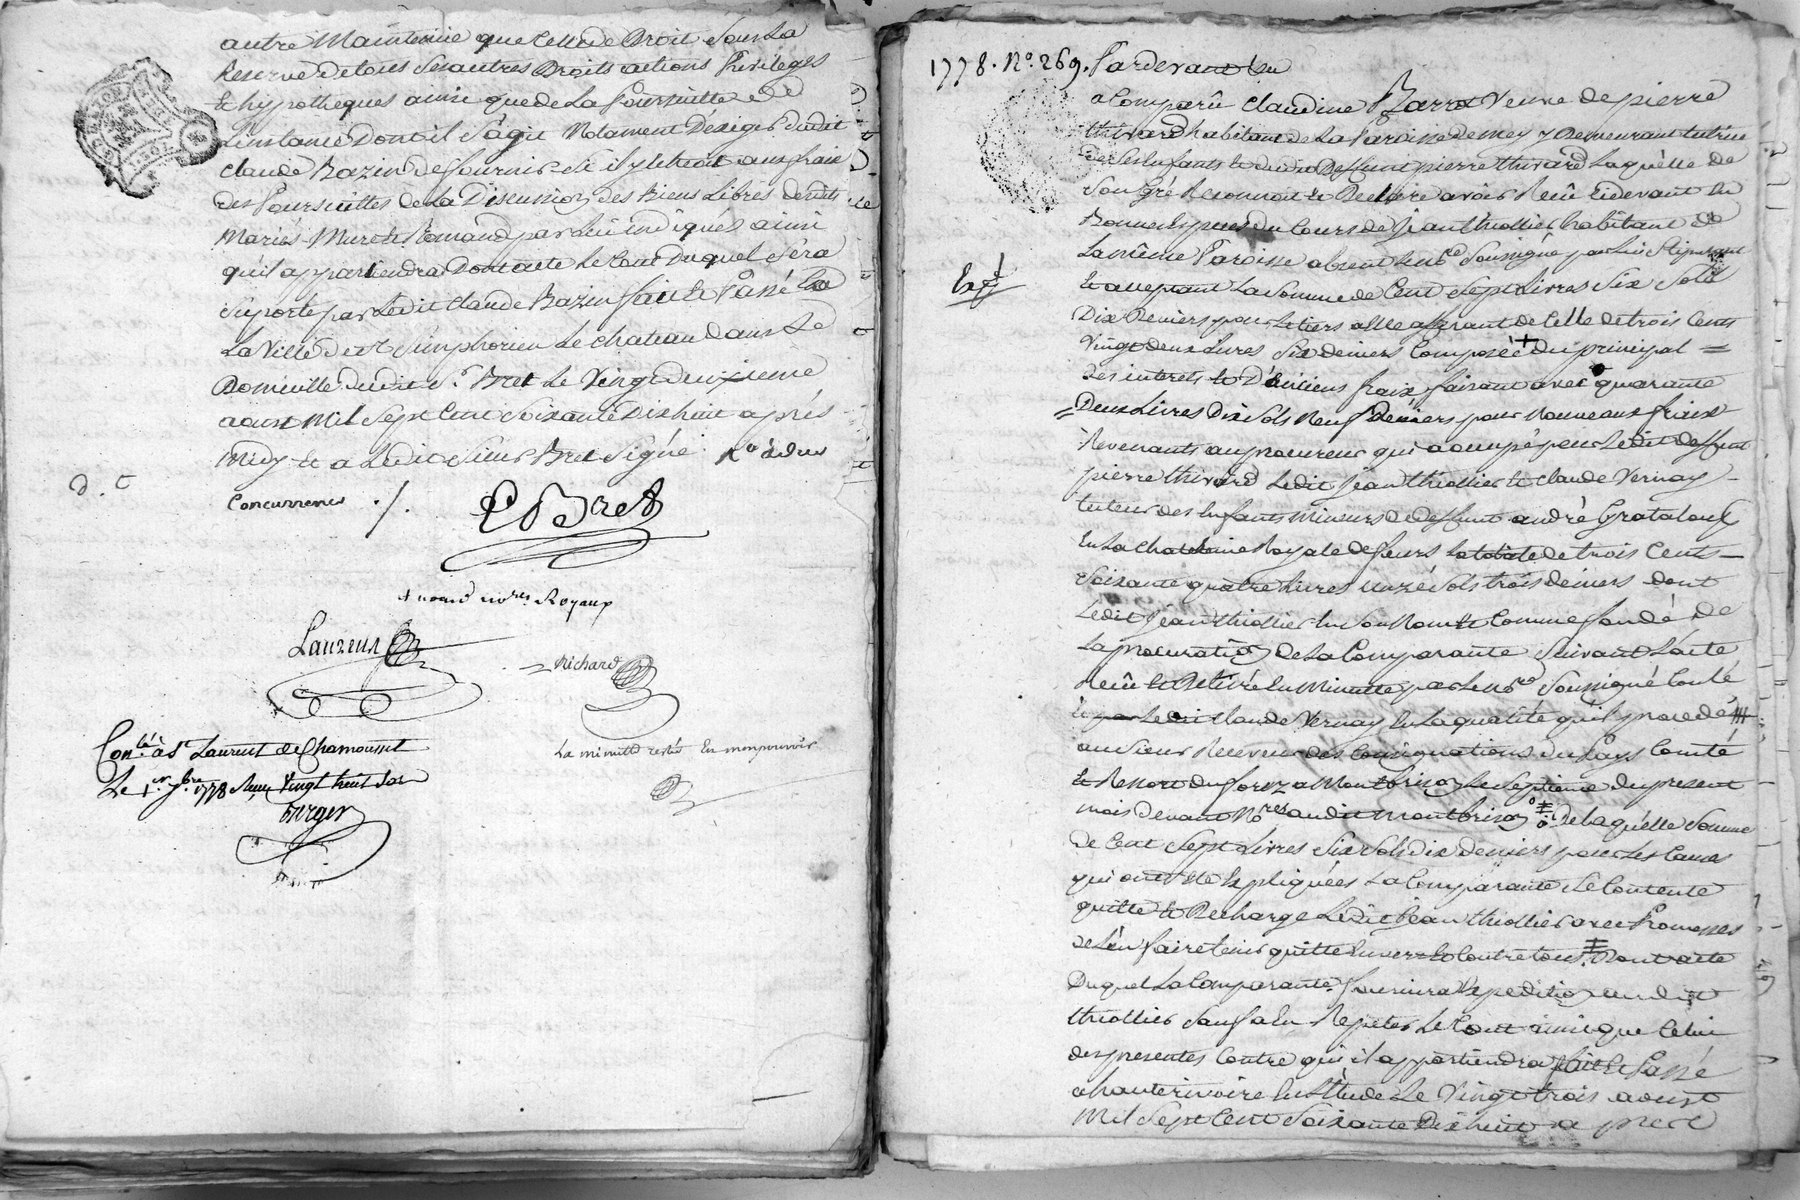 autre Maintenüe que Celle de Droit Sous La
Reserve de tous Ses autres Droits actions Privileges
et hypotheques ainsi que de La Poursuitte et de
L'instance Dont il S'agit Notament D'exiger Dudit
Claude Bazin de fournir Si il y Echeoit aux frais
des Poursuittes de La Discussion des Biens Libres desdits
Mariés Muret et Romand par Lui indiqués ainsi
qu'il appartiendra Dont acte Le Cout Duquel Sera
Suporté par Ledit Claude Bazin fait et Passé En
La Ville de St Simphorien Le chateau dans Le
Domicille dudit Sr Bret Le Vingt deuxieme
aoust Mil Sept Cent Soixante Dix huit après
Midy et a Ledit Sieur Bret Signé
Concurrence ./.
d. t
CBret
nores Royaux
Laurent
Richard
La minutte restée En mon pouvoir
Conlé à St Laurent de Chamousset
Le 1er 7bre 1778 Reçu Vingt huit Sols
1778. No. 269. Pardevant Les
a Comparû Claudine Barrot Veuve de pierre
thivard habitante de La Paroisse de mey y Demeurant tutrice
de Ses Enfants et dudit Deffunt pierre thivard Laquelle de
Son gré Reconnoit et Declare avoir Reçû Cidevant En
Bonnes Especes du Cours de Jean thiollier habitant de
La même Paroisse absent Le nre Soussigné pour Lui Stipulant
Expé
et acceptant La Somme de Cent Sept Livres Six Sols
Dix Deniers pour Le tiers a Elle afferant de Celle de trois Cents
Vingt deux Livres Six deniers Composée du principal =
des interets et D'anciens fraix faisant avec quarante
= Deux Livres Dix Sols Neuf Deniers pour Nouveaux fraix
Revenants au procureur qui a occupé pour Ledit deffunt
pierre thivard Ledit Jean thiollier et Claude Vernay
tuteur des Enfants Mineurs de deffunt andré Grataloux
En La Chatelainie Royale de feurs La totalité de trois Cents
Soixante quatre Livres unze Sols trois deniers dont
Ledit Jean thiollier En Son Nom et Comme fondé de
La procuration de La Comparante Suivant L'acte
Reçû et Retiré En Minutte par Le nre Soussigné
et par Ledit Claude Vernay En La qualité qu'il procede
au Sieur Receveur des Consignations du Pays Comté
et Ressort du forez a Montbrison Le Septieme du present
mois devant Nores audit Montbrison de Laquelle Somme
de Cent Sept Livres Six Sols dix deniers pour Les Causes
qui ont été Expliquées La Comparante Se Contente
quitte et Decharge Ledit Jean thiollier avec Promesses
de L'en faire tenir quitte Envers et Contre tous Dont acte
Duquel La Comparante fournira Expedition audit
thiollier Sauf a En Repeter Le Cout ainsi que Celui
des presentes Contre qui il appartiendra fait et Passé
a hauterivoire En L'Etude Le Vingt trois aoust
Mil Sept Cent Soixante Dix huit